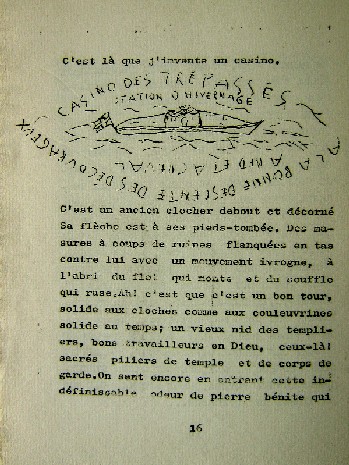 C'est là que j'invente un casino.
CASINO DES TRÉPASSÉS
STATION D'HIVERNAGE
A LA BONNE DESCENTE DES DÉCOURAGEUX
A PIED ET A CHEVAL
C'est un ancien clocher debout et décorné
Sa flèche est à ses pieds-tombée. Des ma-
sures à coups de ruines flanquées en tas
contre lui avec un mouvement ivrogne, à
l'abri du flot qui monte et du souffle
qui ruse.Ah! c'est que c'est un bon tour,
solide aux cloches comme aux couleuvrines
solide au temps; un vieux nid des templi-
ers, bons travailleurs en Dieu, ceux-là!
sacrés piliers de temple et de corps de
garde.On sent encore en entrant cette in-
définissable odeur de pierre bénite qui
16